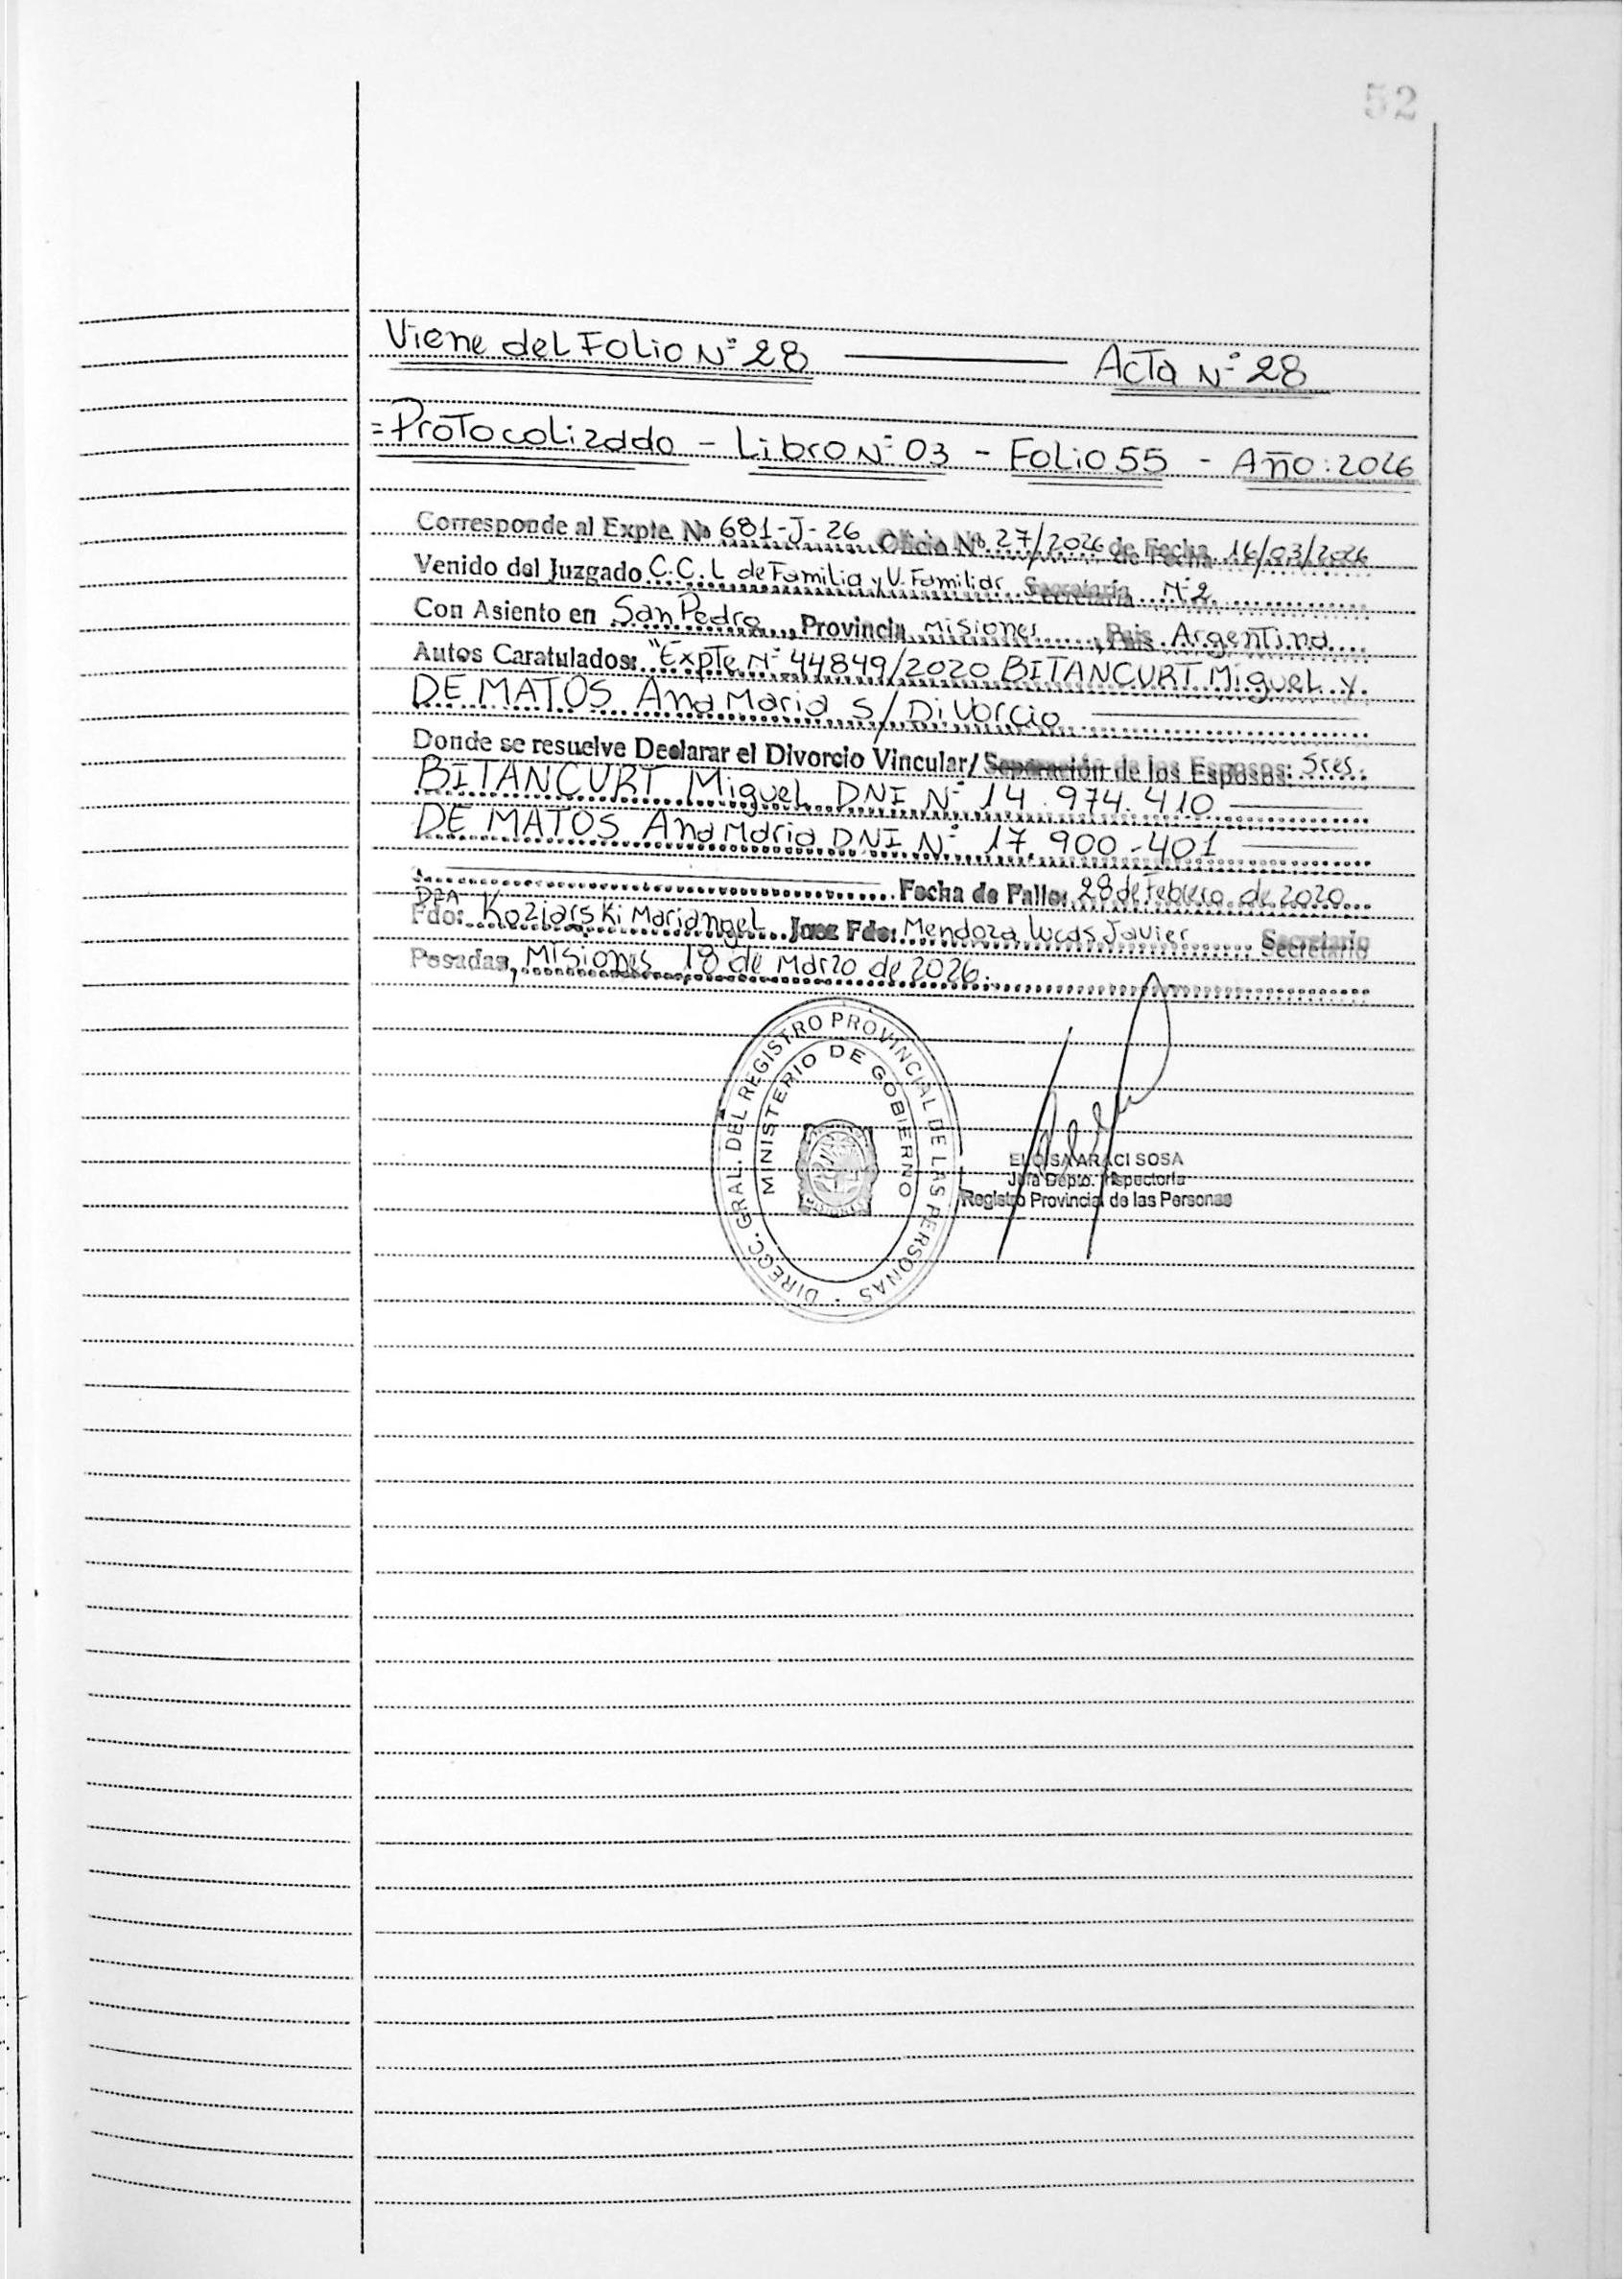 52
Viene del Folio Nº 28 ——— Acta Nº 28
= Protocolizado - Libro Nº 03 - Folio 55 - Año: 2026
Corresponde al Expte. Nº 681-J-26 Oficio Nº 27/2026 de Fecha 16/03/2026
Venido del Juzgado C.C.L de Familia y V. Familiar Secretaría Nº 2
Con Asiento en San Pedro, Provincia Misiones, País Argentina
Autos Caratulados: "Expte Nº 44849/2020 BITANCURT Miguel y
DE MATOS Ana Maria S/ Divorcio
Donde se resuelve Declarar el Divorcio Vincular/Separación de los Esposos: Sres.
BITANCURT Miguel DNI Nº 14.974.410
DE MATOS Ana Maria DNI Nº 17.900-401
Fecha de Fallo: 28 de Febrero de 2020
DRA
Fdo: Koziarski Mariangel Juez Fdo: Mendoza Lucas Javier Secretario
Posadas, Misiones 18 de Marzo de 2026.
DIRECC. GRAL. DEL REGISTRO PROVINCIAL DE LAS PERSONAS
MINISTERIO DE GOBIERNO
ELOISA ARACI SOSA
Jefa Depto. Inspectoría
Registro Provincial de las Personas